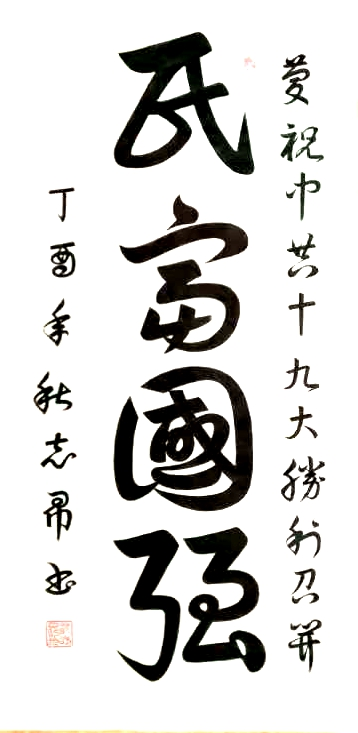 慶祝中共十九大勝利召開
民富國強
丁酉年秋志帛书